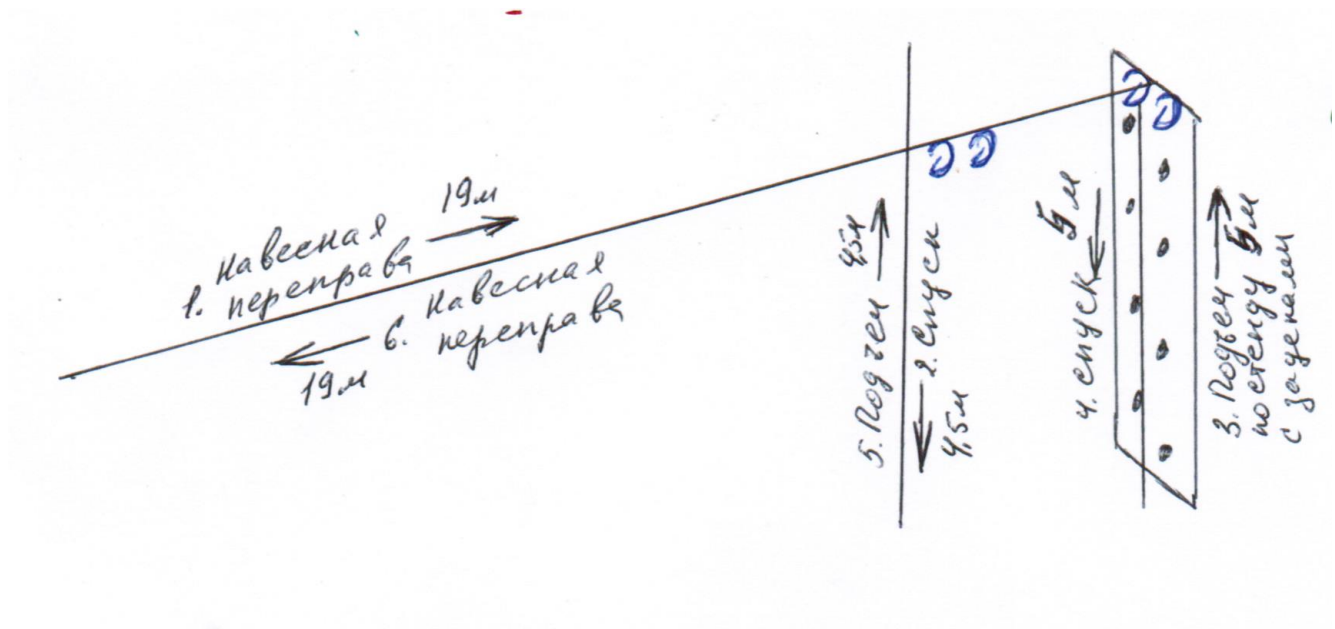 1. навесная
переправа
19м
6. навесная
переправа
19м
5. Подъем 4,5м
2. Спуск
4,5м
4. спуск 5м
3. Подъем
по стенду 5м
с зацепами